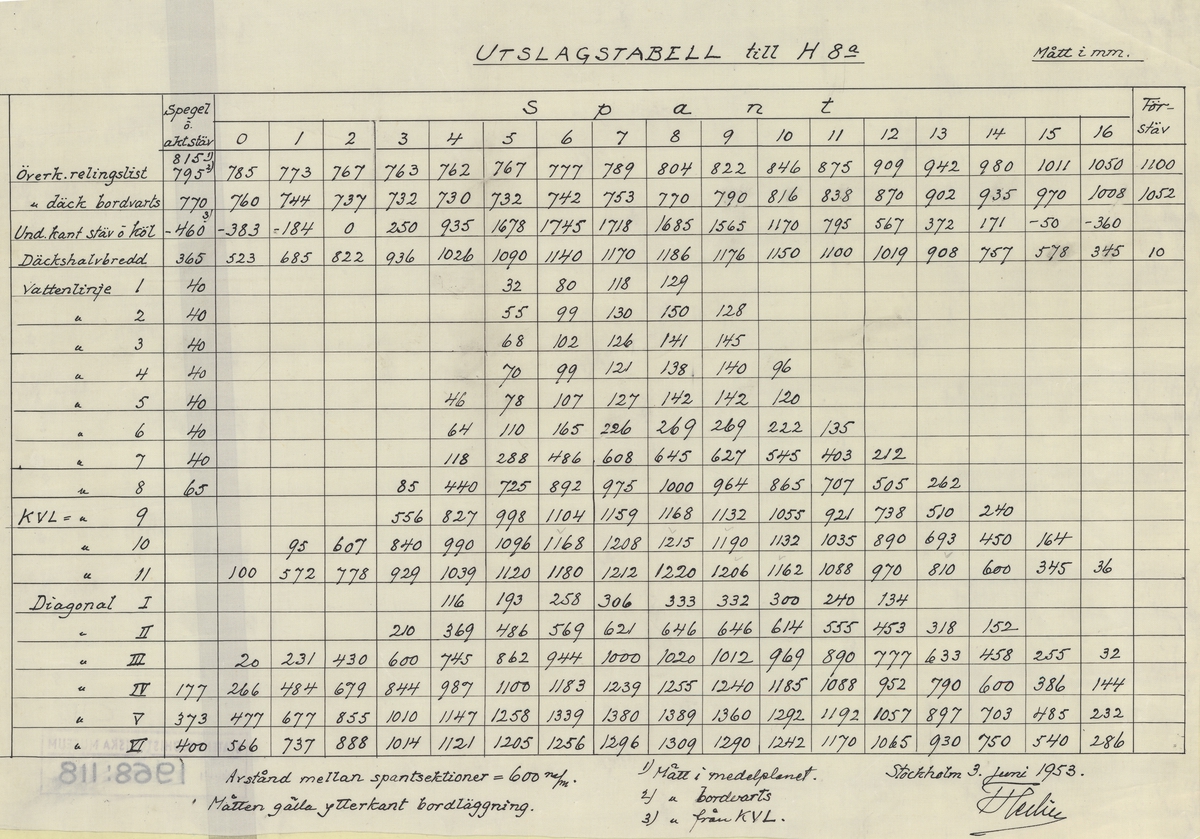 UTSLAGSTABELL till H 8a
Mått i mm.
Spegel ö. aktstäv
Spant
För-stäv
0 1 2 3 4 5 6 7 8 9 10 11 12 13 14 15 16
Överk. relingslist 815 1) 795 2) 785 773 767 763 762 767 777 789 804 822 846 875 909 942 980 1011 1050 1100
" däck bordvarts 770 760 744 737 732 730 732 742 753 770 790 816 838 870 902 935 970 1008 1052
Und. kant stäv ö köl -460 3) -383 -184 0 250 935 1678 1745 1718 1685 1565 1170 795 567 372 171 -50 -360
Däckshalvbredd 365 523 685 822 936 1026 1090 1140 1170 1186 1176 1150 1100 1019 908 757 578 345 10
Vattenlinje 1 40 32 80 118 129
" 2 40 55 99 130 150 128
" 3 40 68 102 126 141 145
" 4 40 70 99 121 138 140 96
" 5 40 46 78 107 127 142 142 120
" 6 40 64 110 165 226 269 269 222 135
" 7 40 118 288 486 608 645 627 545 403 212
" 8 65 85 440 725 892 975 1000 964 865 707 505 262
KVL = " 9 556 827 998 1104 1159 1168 1132 1055 921 738 510 240
" 10 95 607 840 990 1096 1168 1208 1215 1190 1132 1035 890 693 450 164
" 11 100 572 778 929 1039 1120 1180 1212 1220 1206 1162 1088 970 810 600 345 36
Diagonal I 116 193 258 306 333 332 300 240 134
" II 210 369 486 569 621 646 646 614 555 453 318 152
" III 20 231 430 600 745 862 944 1000 1020 1012 969 890 777 633 458 255 32
" IV 177 266 484 679 844 987 1100 1183 1239 1255 1240 1185 1088 952 790 600 386 144
" V 373 477 677 855 1010 1147 1258 1339 1380 1389 1360 1292 1192 1057 897 703 485 232
" VI 400 566 737 888 1014 1121 1205 1256 1296 1309 1290 1242 1170 1065 930 750 540 286
Avstånd mellan spantsektioner = 600 m/m.
Måtten gälla ytterkant bordläggning.
1) Mått i medelplanet.
2) " bordvarts
3) " från KVL.
Stockholm 3. juni 1953.
1968:118